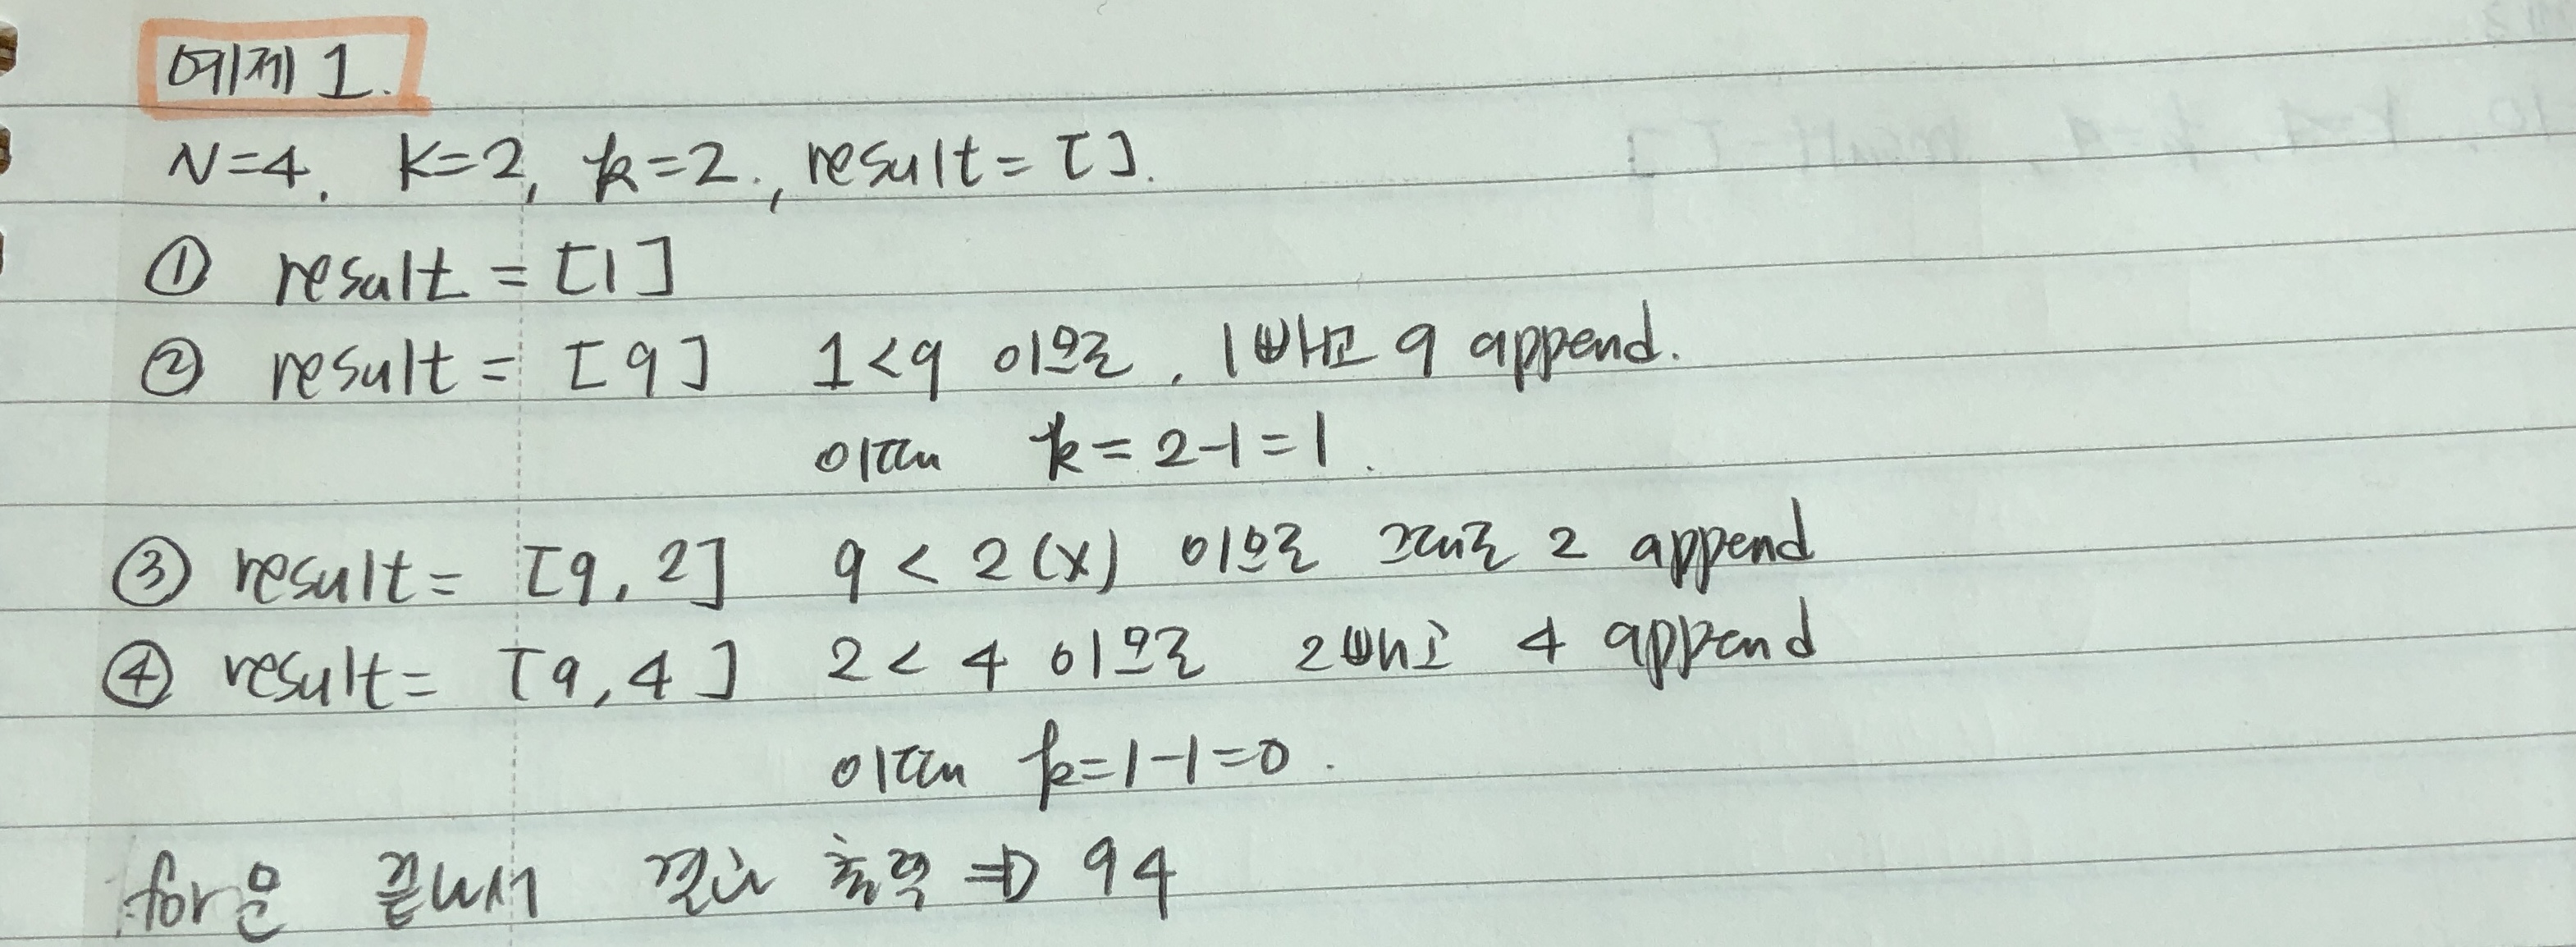 예제 1.
N=4, K=2, k=2., result = [].
① result = [1]
② result = [9] 1<9 이므로, 1빼고 9 append.
이때 k = 2-1 = 1.
③ result = [9, 2] 9 < 2 (x) 이므로 그대로 2 append
④ result = [9, 4] 2 < 4 이므로 2빼고 4 append
이때 k=1-1=0.
for문 끝나서 결과 출력 ⇒ 94